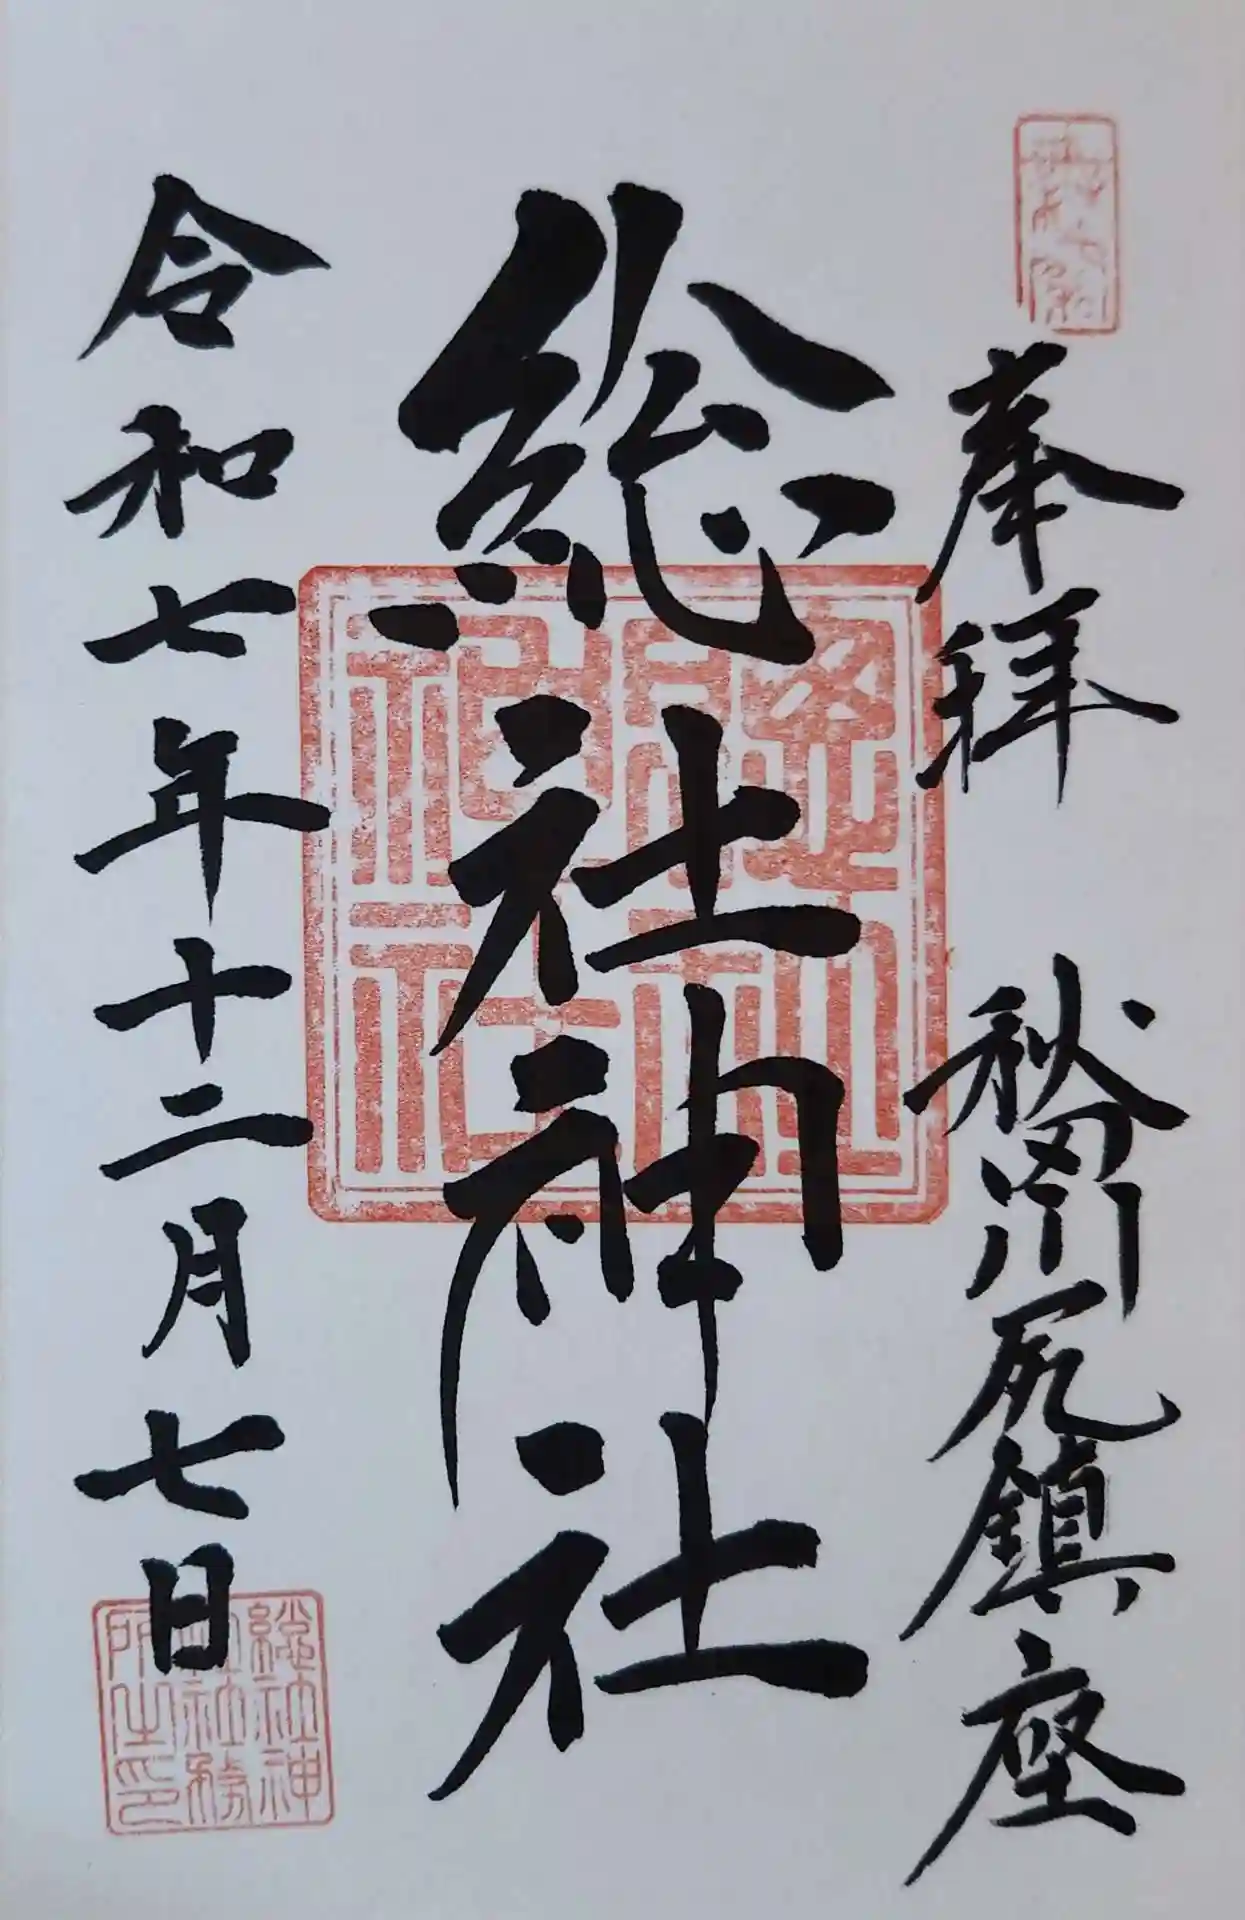 奉拝 秋田川尻鎮座
総社神社
令和七年十二月七日
総社神
社社務
所之印